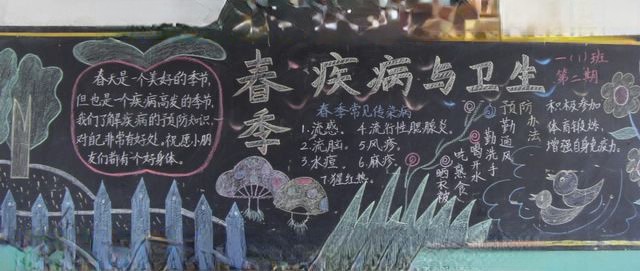 春季
疾病与卫生
一(1)班
第二期
春天是一个美好的季节,
但也是一个疾病高发的季节,
我们了解疾病的预防知识,
对自己非常有好处。祝愿小朋
友们都有个好身体。
春季常见传染病
1.流感.
2.流脑.
3.水痘.
4.流行性腮腺炎.
5.风疹.
6.麻疹.
7.猩红热.
预防办法
勤通风
勤洗手
喝开水
吃熟食
晒衣被
积极参加
体育锻炼,
增强自身免疫力。